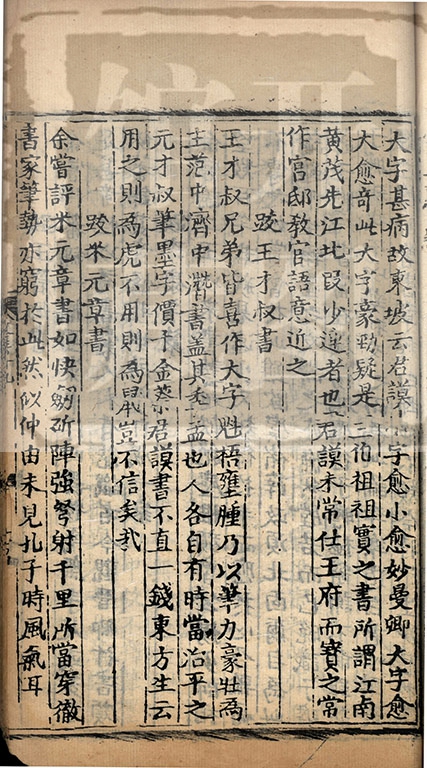 大字甚病故東坡云君謨小字愈小愈妙曼卿大字愈
大愈奇此大字豪勁疑是三伯祖祖寶之書所謂江南
黃茂先江北段少連者也君謨未常仕王府而寶之常
作宮邸教官語意近之
跋王才叔書
王才叔兄弟皆喜作大字魁梧壅腫乃以筆力豪壯為
主范中濟中濳書盖其季孟也人各自有時當治平之
元才叔筆墨字價千金蔡君謨書不直一錢東方生云
用之則為虎不用則為鼠豈不信矣哉
跋米元章書
余嘗評米元章書如快劒斫陣強弩射千里所當穿徹
書家筆勢亦窮於此然似仲由未見孔子時風氣耳